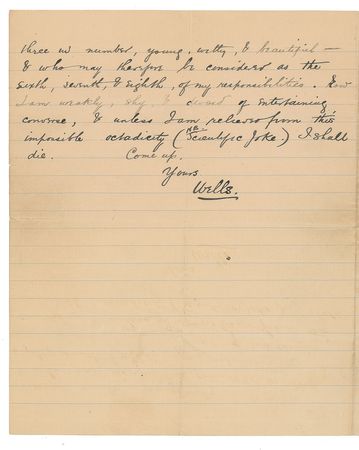 three in number, young, witty, & beautiful —
& who may therefore be considered as the
sixth, seventh, & eighth, of my responsibilities. Now
I am weakly, shy, & devoid of entertaining
converse, & unless I am released from this
impossible octadicity (N.B. Scientific Joke) I shall
die. Come up.
Yours
Wells.